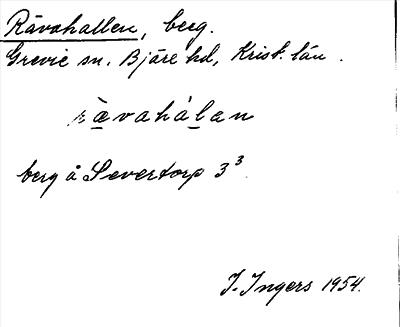 Rävahallen, berg.
Grevie sn. Bjäre hd, Krist. län.
rävahálan
berg å Severtorp 3³.
I. Ingers 1954.